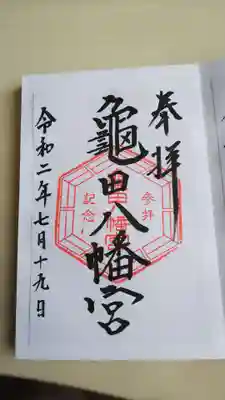 奉拝
龜田八幡宮
参拝
記念
令和二年七月十九日